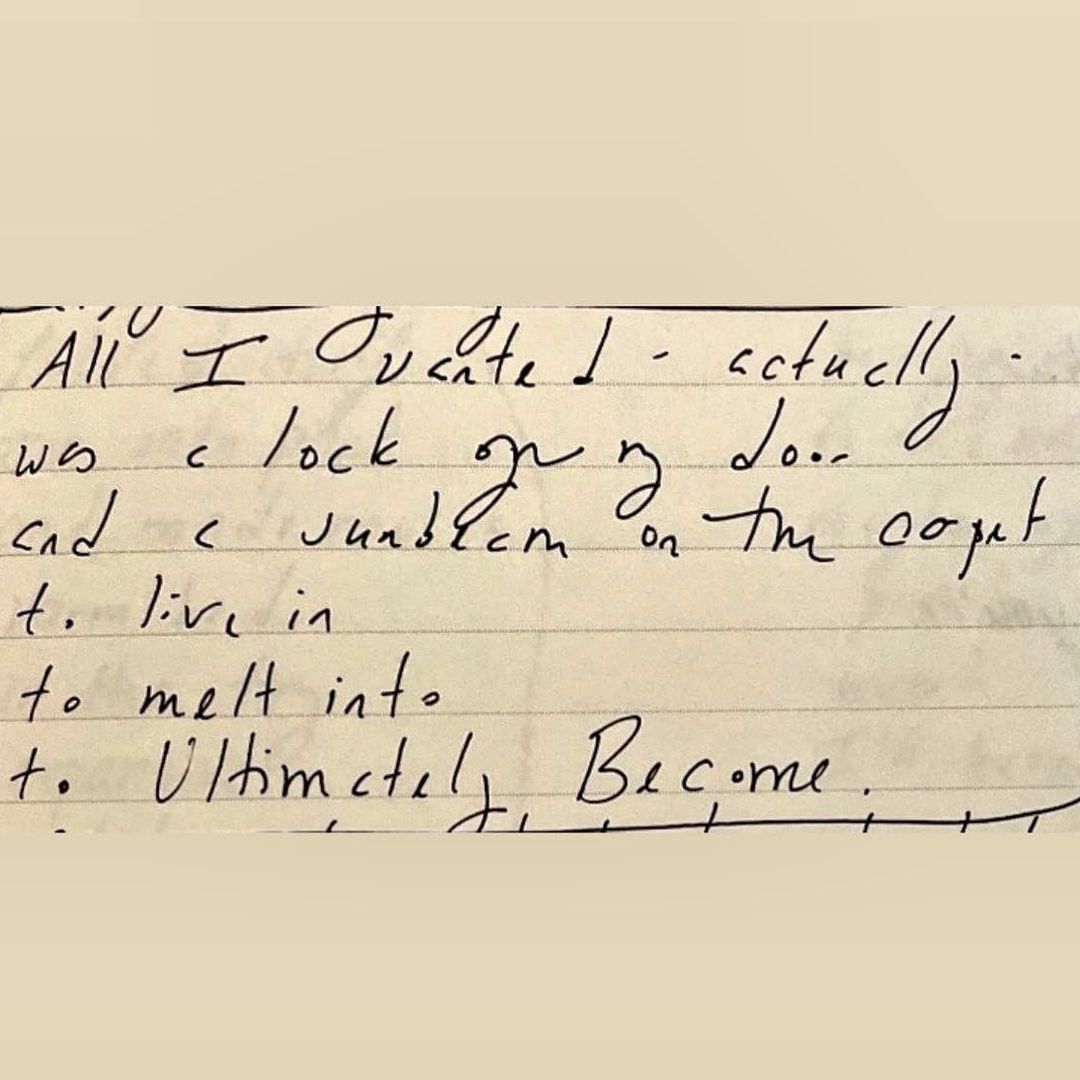 All I wanted - actually -
was a lock on my door
and a sunbeam on the carpet
to live in
to melt into
to Ultimately Become.